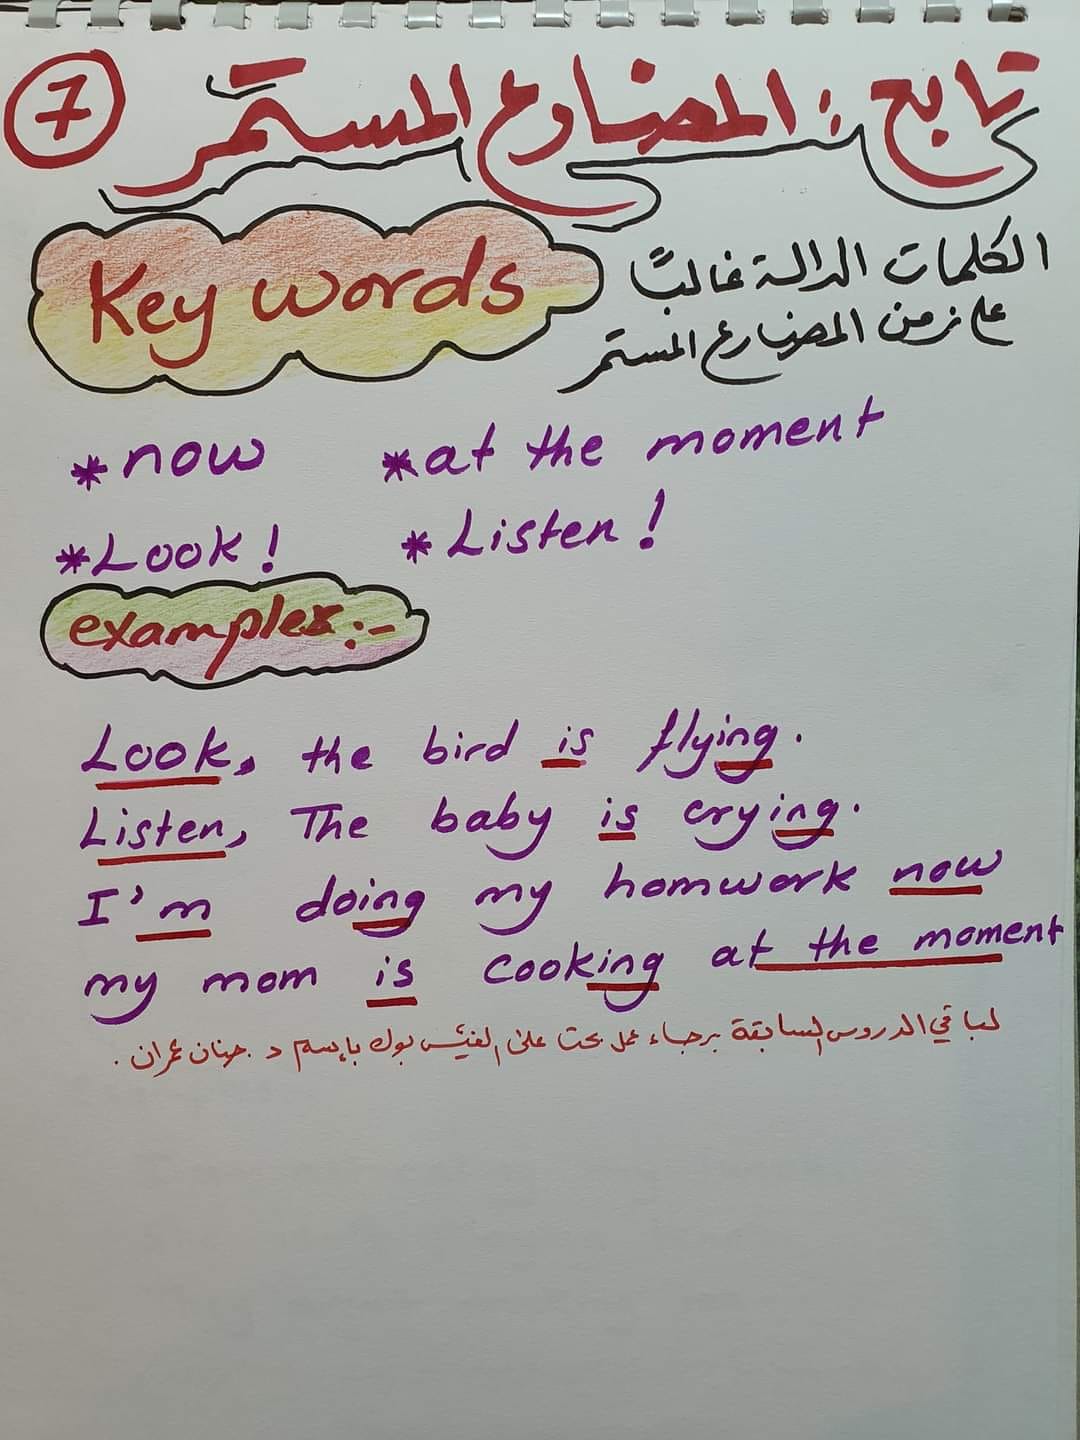 تابع : المضارع المستمر 7
Key words
الكلمات الدالة غالبًا
على زمن المضارع المستمر
*now *at the moment
*Look! *Listen!
examples:-
Look, the bird is flying.
Listen, The baby is crying.
I'm doing my homwork now
my mom is cooking at the moment
لباقي الدروس السابقة برجاء عمل بحث على الفيس بوك بإسم د. حنان عمران.